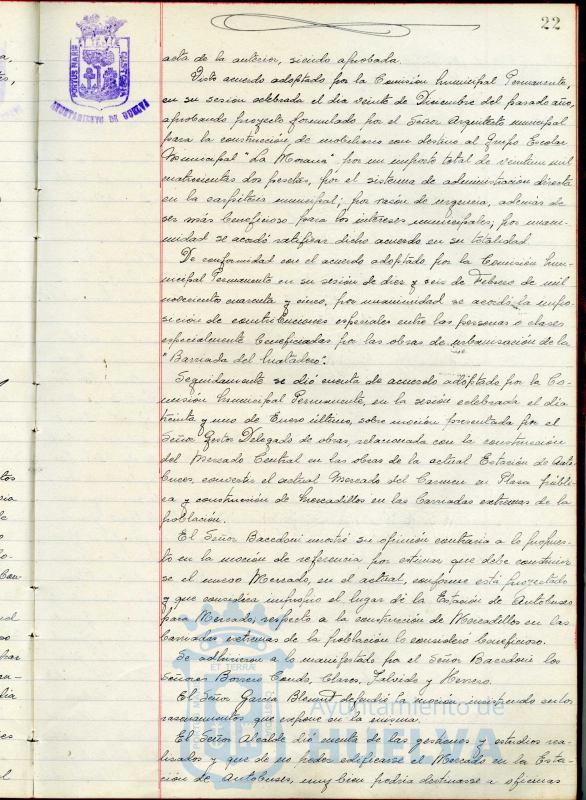 22
PORTUS MARIS
CUSTODIA
AYUNTAMIENTO DE HUELVA
acta de la anterior, siendo aprobada.
Visto acuerdo adoptado por la Comisión Municipal Permanente,
en su sesión celebrada el dia veinte de Diciembre del pasado año,
aprobando proyecto formulado por el Señor Arquitecto municipal
para la construcción de mobiliario con destino al Grupo Escolar
Municipal "La Morana" por un importe total de veintiun mil
cuatrocientas dos pesetas, por el sistema de administración directa
en la carpintería municipal; por razón de urgencia, además de
ser más beneficioso para los intereses municipales; por unani-
midad se acordó ratificar dicho acuerdo en su totalidad.
De conformidad con el acuerdo adoptado por la Comisión Mu-
nicipal Permanente en su sesión de diez y seis de Febrero de mil
novecientos cuarenta y cinco, por unanimidad se acordó la impo
sición de contribuciones especiales entre las personas o clases
especialmente beneficiadas por las obras de urbanización de la
"Barriada del Matadero".
Seguidamente se dió cuenta de acuerdo adoptado por la Co-
misión Municipal Permanente, en la sesión celebrada el dia
treinta y uno de Enero último, sobre moción presentada por el
Señor Gestor Delegado de obras, relacionada con la construcción
del Mercado Central en las obras de la actual Estación de Auto
buses, convertir el actual Mercado del Carmen en Plaza públi-
ca y construcción de Mercadillos en las barriadas extremas de la
población.
El Señor Bacedoni mostró su opinión contraria a lo propues-
to en la moción de referencia por estimar que debe construir
se el nuevo Mercado, en el actual, conforme está proyectado
y que considera impropio el lugar de la Estación de Autobuses
para Mercado, respecto a la construcción de Mercadillos en las
barriadas extremas de la población lo consideró beneficioso.
Se adhirieron a lo manifestado por el Señor Bacedoni los
Señores Borrero Conde, Claros, Salcido y Herrero.
El Señor García defendió la moción, insistiendo en los
razonamientos que expone en la misma.
El Señor Alcalde dió cuenta de las gestiones y estudios rea-
lizados y que de no poder edificarse el Mercado en la Esta-
ción de Autobuses, muy bien podría destinarse a oficinas
ET TERRA
Ayuntamiento de
HUELVA